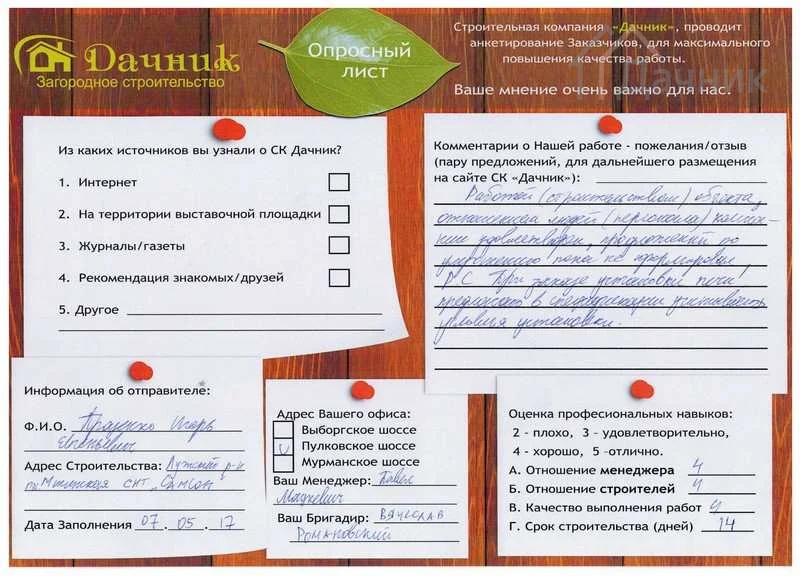 Дачник
Загородное строительство
Опросный
лист
Строительная компания «Дачник», проводит
анкетирование Заказчиков, для максимального
повышения качества работы.
Ваше мнение очень важно для нас.
Дачник
Из каких источников вы узнали о СК Дачник?
1. Интернет
2. На территории выставочной площадки
3. Журналы/газеты
4. Рекомендация знакомых/друзей
5. Другое
Комментарии о Нашей работе - пожелания/отзыв
(пару предложений, для дальнейшего размещения
на сайте СК «Дачник»):
Работой (строительством) объекта,
отношением людей (персонала) компа-
нии удовлетворен, предложений по
улучшению пока не сформировал.
P.S. При заказе установки печи
предлагать в спецификации учитывать
условия установки.
Информация об отправителе:
Ф.И.О. Игорь
Евгеньевич
Адрес Строительства: Лужский р-н
п. Мшинская СНТ
Дата Заполнения 07.05.17
Адрес Вашего офиса:
Выборгское шоссе
V Пулковское шоссе
Мурманское шоссе
Ваш Менеджер: Павел
Ваш Бригадир: Вячеслав
Романовский
Оценка професиональных навыков:
2 - плохо, 3 - удовлетворительно,
4 - хорошо, 5 -отлично.
А. Отношение менеджера 4
Б. Отношение строителей 4
В. Качество выполнения работ 4
Г. Срок строительства (дней) 14